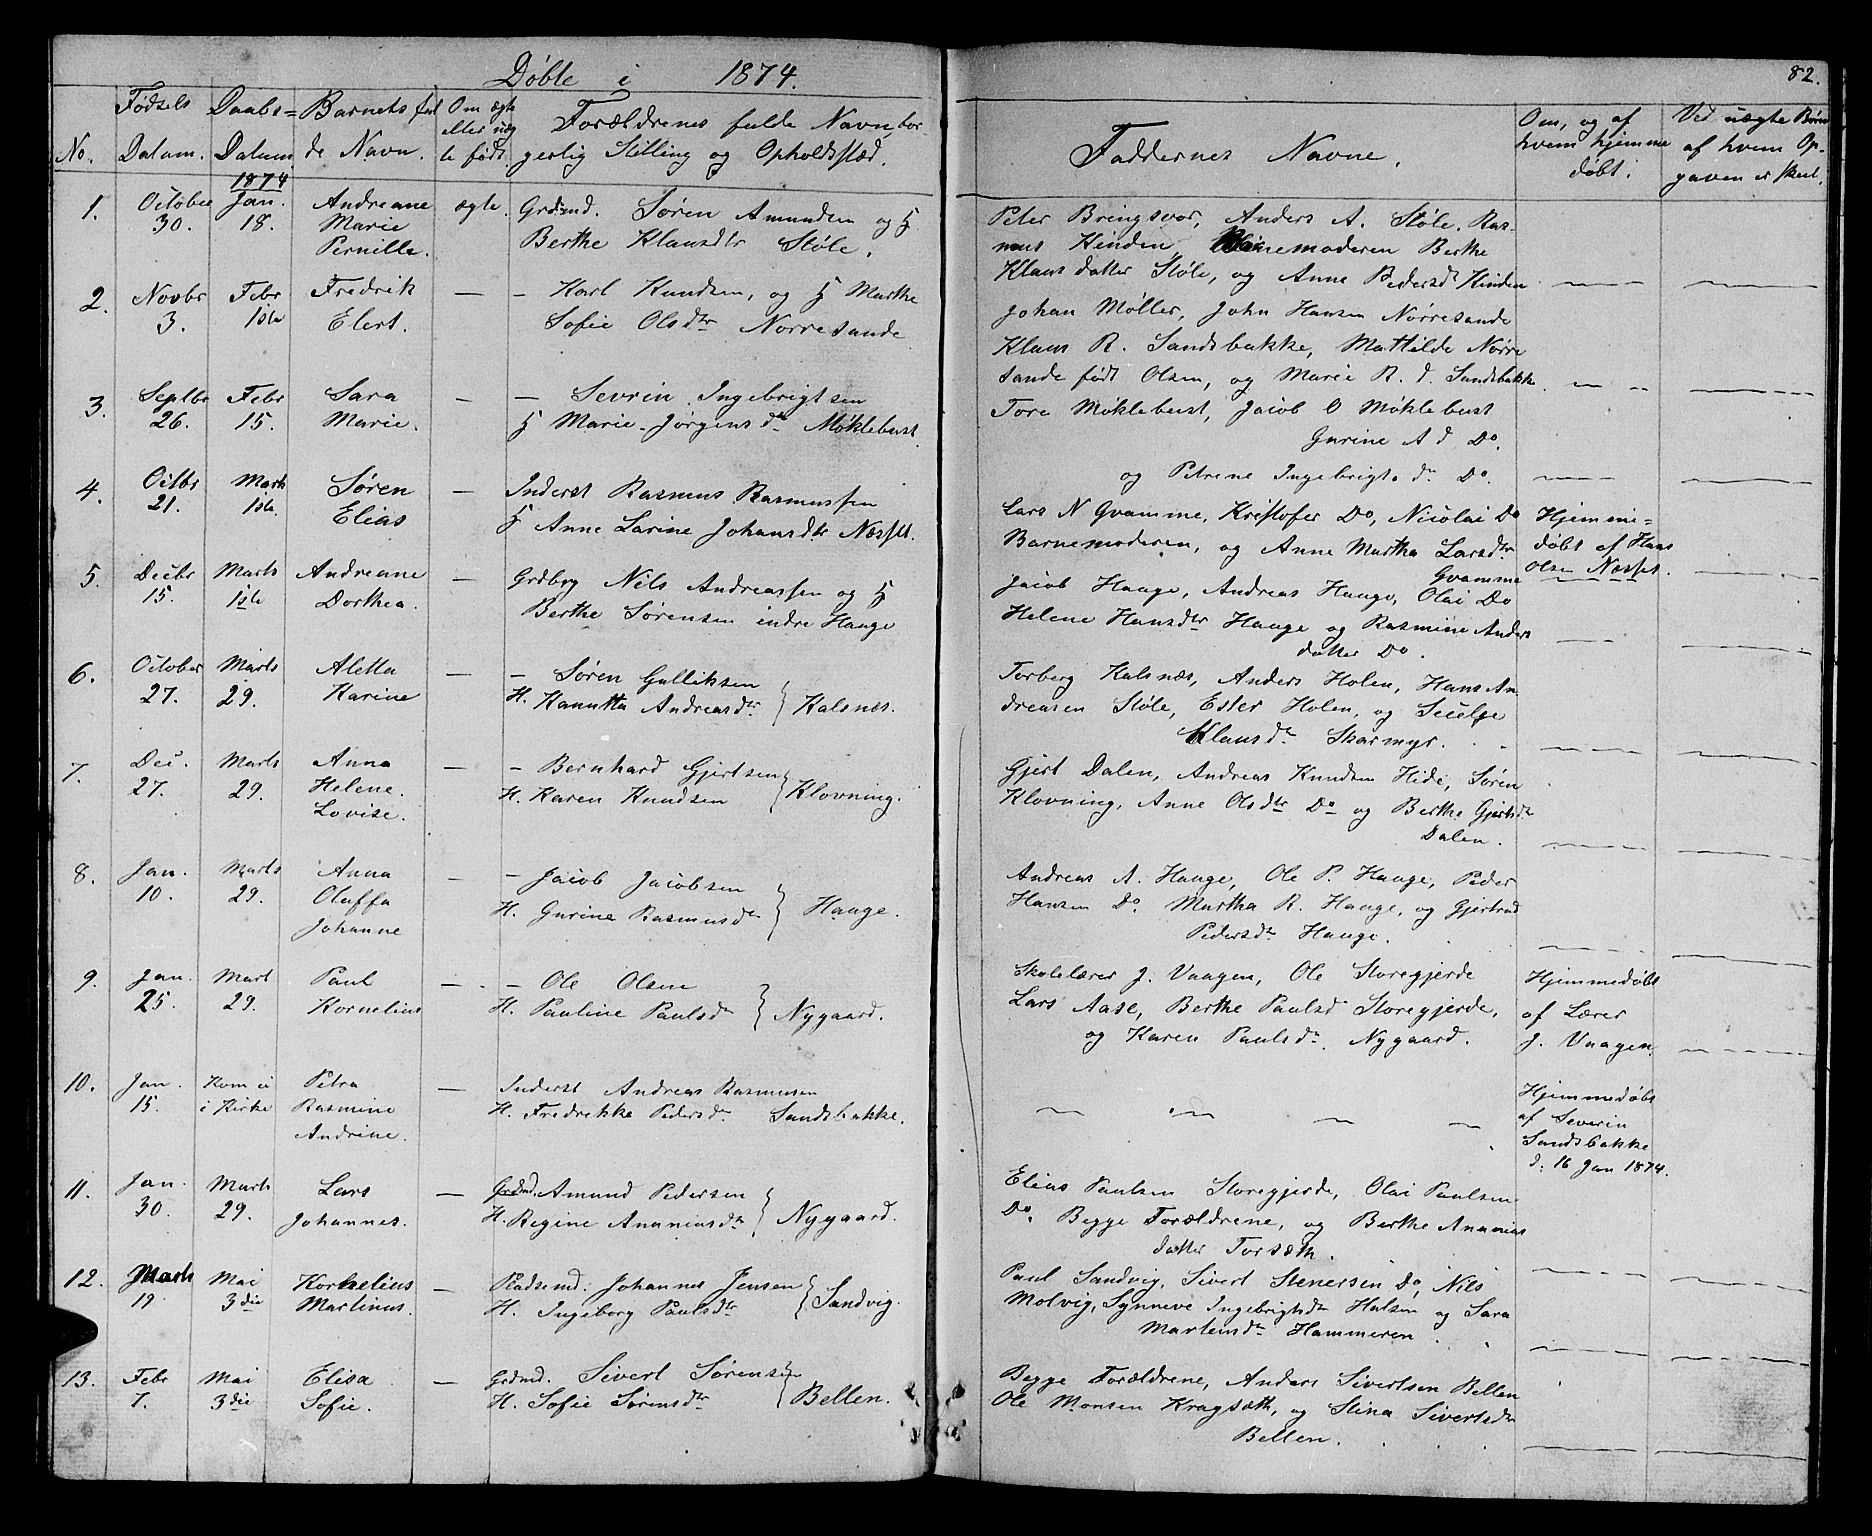 Døbte i 1874.
82.
No.
Fødsels
Datum.
Daabs=
Datum
Barnets ful
de Navn.
Om ægte
eller uæg
te født.
Forældrenes fulde Navn, bor-
gerlig Stilling og Opholdssted.
Faddernes Navne.
Om, og af
hvem hjemme
døbt.
Ved uægte Børn
af hvem Op-
gaven er skeet.
1.
October
30.
1874
Jan.
18.
Andreane
Marie
Pernille.
ægte.
Grdmd. Søren Amundsen og H
Berthe Klausdtr Støle.
Peter Bringsvor, Anders A. Støle. Ras-
mus Hinden, Barnemoderen Berthe
Klausdatter Støle, og Anne Pedersdr Hinden
2.
Novbr
3.
Febr
1ste
Fredrik
Elert.
— Karl Knudsen, og H Marthe
Sofie Olsdtr Norresande
Johan Møller, John Hansen Nørresande
Klaus R. Sandsbakke, Mathilde Nørre
sande født Olsen, og Marie R. d. Sandsbakk.
3.
Septbr
26.
Febr
15.
Sara
Marie.
— Sevrin Ingebrigtsen
H Marie Jørgensdr Møklebust.
Tore Møklebust, Jacob O Møklebust
Gurine A d Do.
og Petrene Ingebrigts dr Do.
4.
Octbr
21.
Marts
1ste.
Søren
Elias
Inderst Rasmus Rasmussen
H Anne Larine Johansdtr Næsset.
Lars N Gvamme, Kristofer Do, Nicolai Do
Barnemoderen, og Anne Martha Larsdtr
Gvamme
Hjemme=
døbt af Hans
Olsen Næsset.
5.
Decbr
15.
Marts
1ste
Andreane
Dorthea.
Grdbrg Nils Andreassen og H
Berthe Sørensen indre Hauge
Jacob Hauge, Andreas Hauge, Olai Do
Helene Hansdtr Hauge og Rasmine Anders
datter Do.
6.
October
27.
Marts
29.
Aletta
Karine
— Søren Gulliksen
H. Hanutta Andreasdtr } Kalsnæs.
Torberg Kalsnæs, Anders Holen, Hans An
dreasen Støle, Ester Holen, og
Klausdr Skarmyr.
7.
Dec.
27.
Marts
29.
Anna
Helene.
Lovise.
— Bernhard Gjertsen
H. Karen Knudsen } Klovning.
Gjert Dalen, Andreas Knudsen Hide, Søren
Klovning, Anne Olsdtr Do og Berthe Gjertsdr
Dalen.
8.
Jan.
10.
Marts
29.
Anna
Oluffa
Johanne
— Jacob Jacobsen
H. Gurine Rasmusdr } Hauge.
Andreas A. Hauge, Ole P. Hauge, Peder
Hansen Do. Martha R. Hauge, og Gjertrud
Pedersdr Hauge.
9.
Jan.
25.
Mart
29.
Paul
Kornelius
— Ole Olsen
H. Pauline Paulsdr } Nygaard.
Skolelærer J. Vaagen, Ole Storegjerde
Lars Aase, Berthe Paulsd Storegjerde,
og Karen Paulsdr. Nygaard.
Hjemmedøbt
af Lærer
J. Vaagen.
10.
Jan.
15.
Kom ei
i Kirke
Petra
Rasmine
Andrine.
Inderst Andreas Rasmusen
H. Fredrikke Pedersdr Sandsbakke.
Hjemmedøbt
af Severin
Sandsbakke
d. 16 Jan 1874.
11.
Jan.
30.
Marts
29.
Lars
Johannes.
Grdmd. Amund Pedersen
H. Regine Ananiasdtr } Nygaard.
Elias Paulsen Storegjerde, Olai Paulsen
Do. Begge Forældrene, og Berthe Ananias
datter Torsæth.
12.
Marts
19.
Mai
3die
Kornelius
Martinus.
Pladsemd. Johannes Jensen
H. Ingeborg Paulsdtr } Sandvig.
Paul Sandvig, Sivert Stenersen Do, Nils
Molvig, Synneve Ingebrigtsdr Halsen og Sara
Martensdr Hammeren.
13.
Febr
7.
Mai
3die
Elisa
Sofie.
Grdmd. Sivert Sørensen
H. Sofie Sørensdtr } Bellen.
Begge Forældrene, Anders Sivertsen Bellen
Ole Monsen Kragsæth, og Stina Sivertsdr
Bellen.